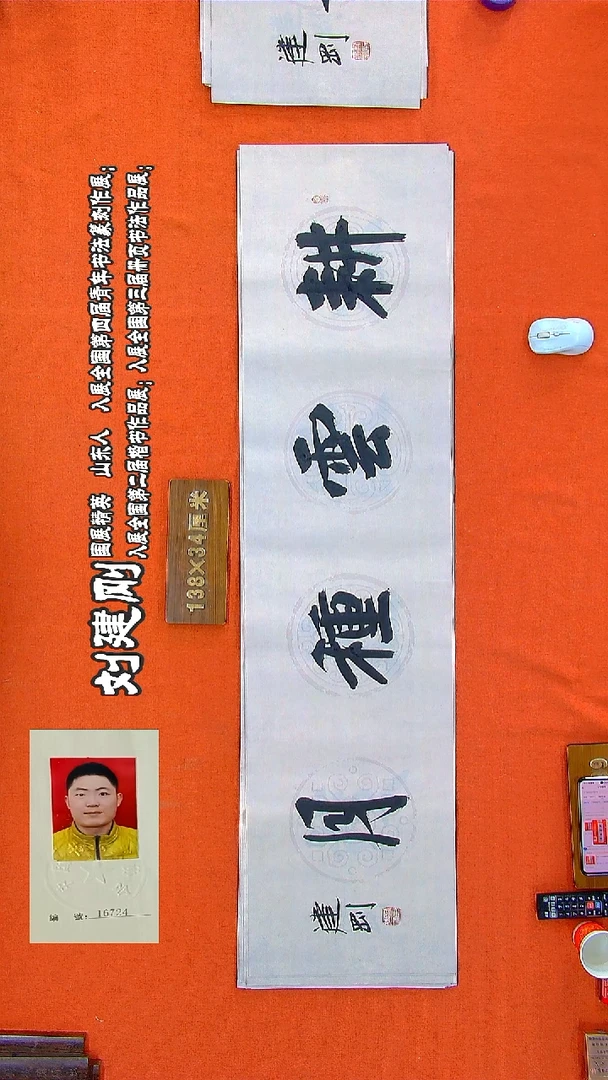 刘建刚
国展精英 山东人 入展全国第四届青年书法篆刻作展;
入展全国第二届楷书作品展; 入展全国第三届册页书法作品展;
138×34厘米
耕雲種月
建剛
建剛
16724